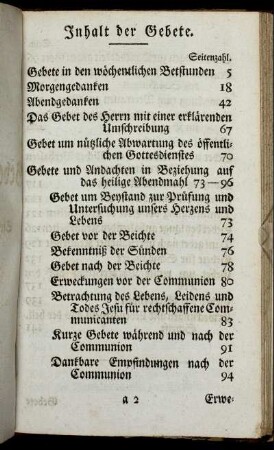 Inhalt der Gebete.
Seitenzahl.
Gebete in den wöchentlichen Betstunden 5
Morgengedanken 18
Abendgedanken 42
Das Gebet des Herrn mit einer erklärenden
Umschreibung 67
Gebet um nützliche Abwartung des öffentli-
chen Gottesdienstes 70
Gebete und Andachten in Beziehung auf
das heilige Abendmahl 73—96
Gebet um Beystand zur Prüfung und
Untersuchung unsers Herzens und
Lebens 73
Gebet vor der Beichte 74
Bekenntniß der Sünden 76
Gebet nach der Beichte 78
Erweckungen vor der Communion 80
Betrachtung des Lebens, Leidens und
Todes Jesu für rechtschaffene Com-
municanten 83
Kurze Gebete während und nach der
Communion 91
Dankbare Empfindungen nach der
Communion 94
a 2 Erwe-